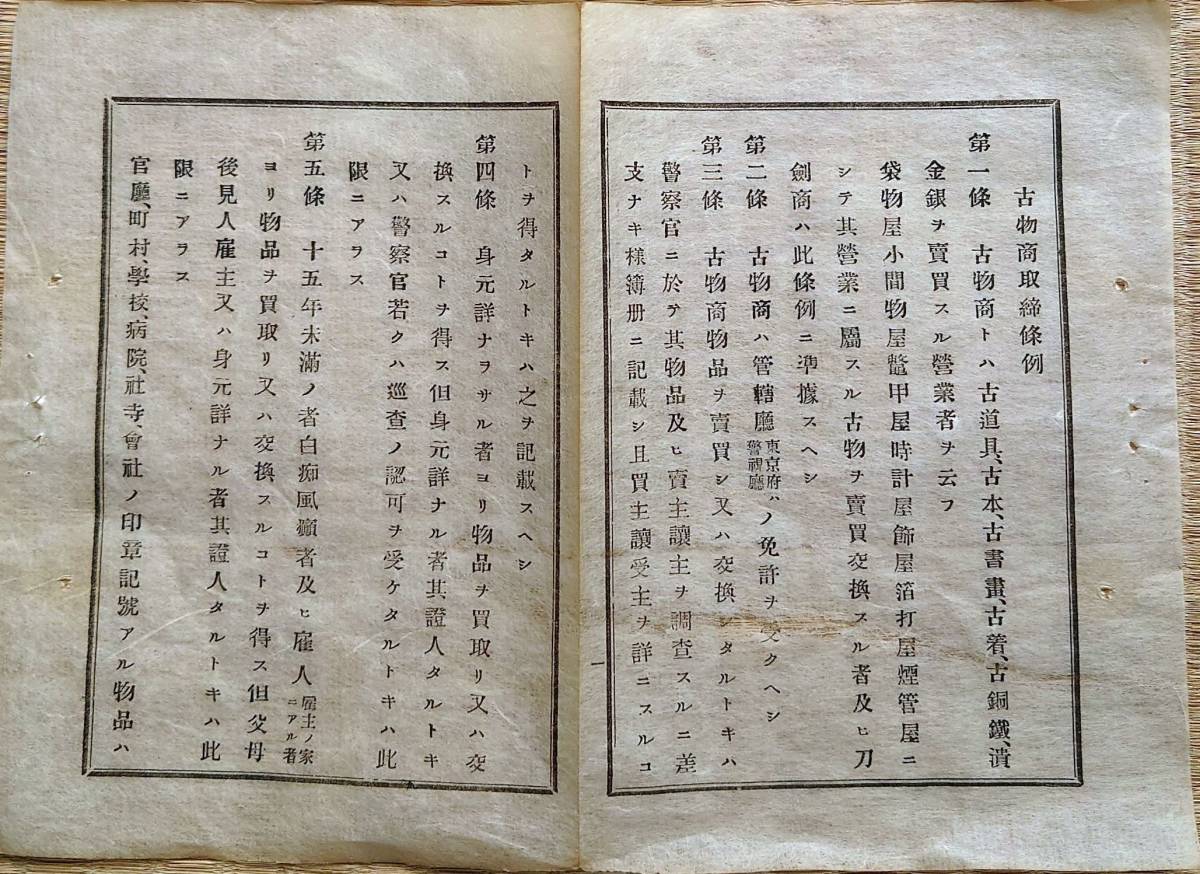 古物商取締條例
第一條　古物商トハ古道具、古本、古書畫、古着、古銅鐵、潰
金銀ヲ賣買スル營業者ヲ云フ
袋物屋小間物屋鼈甲屋時計屋飾屋箔打屋煙管屋ニ
シテ其營業ニ屬スル古物ヲ賣買交換スル者及ヒ刀
劍商ハ此條例ニ準據スヘシ
第二條　古物商ハ管轄廳東京府ハ警視廳ノ免許ヲ受クヘシ
第三條　古物商物品ヲ賣買シ又ハ交換シタルトキハ
警察官ニ於テ其物品及ヒ賣主讓主ヲ調査スルニ差
支ナキ樣簿册ニ記載シ且買主讓受主ヲ詳ニスルコ
一
トヲ得タルトキハ之ヲ記載スヘシ
第四條　身元詳ナラサル者ヨリ物品ヲ買取リ又ハ交
換スルコトヲ得ス但身元詳ナル者其證人タルトキ
又ハ警察官若クハ巡査ノ認可ヲ受ケタルトキハ此
限ニアラス
第五條　十五年未滿ノ者白痴風癲者及ヒ雇人雇主ノ家ニアル者
ヨリ物品ヲ買取リ又ハ交換スルコトヲ得ス但父母
後見人雇主又ハ身元詳ナル者其證人タルトキハ此
限ニアラス
官廳、町村、學校、病院、社寺、會社ノ印章記號アル物品ハ